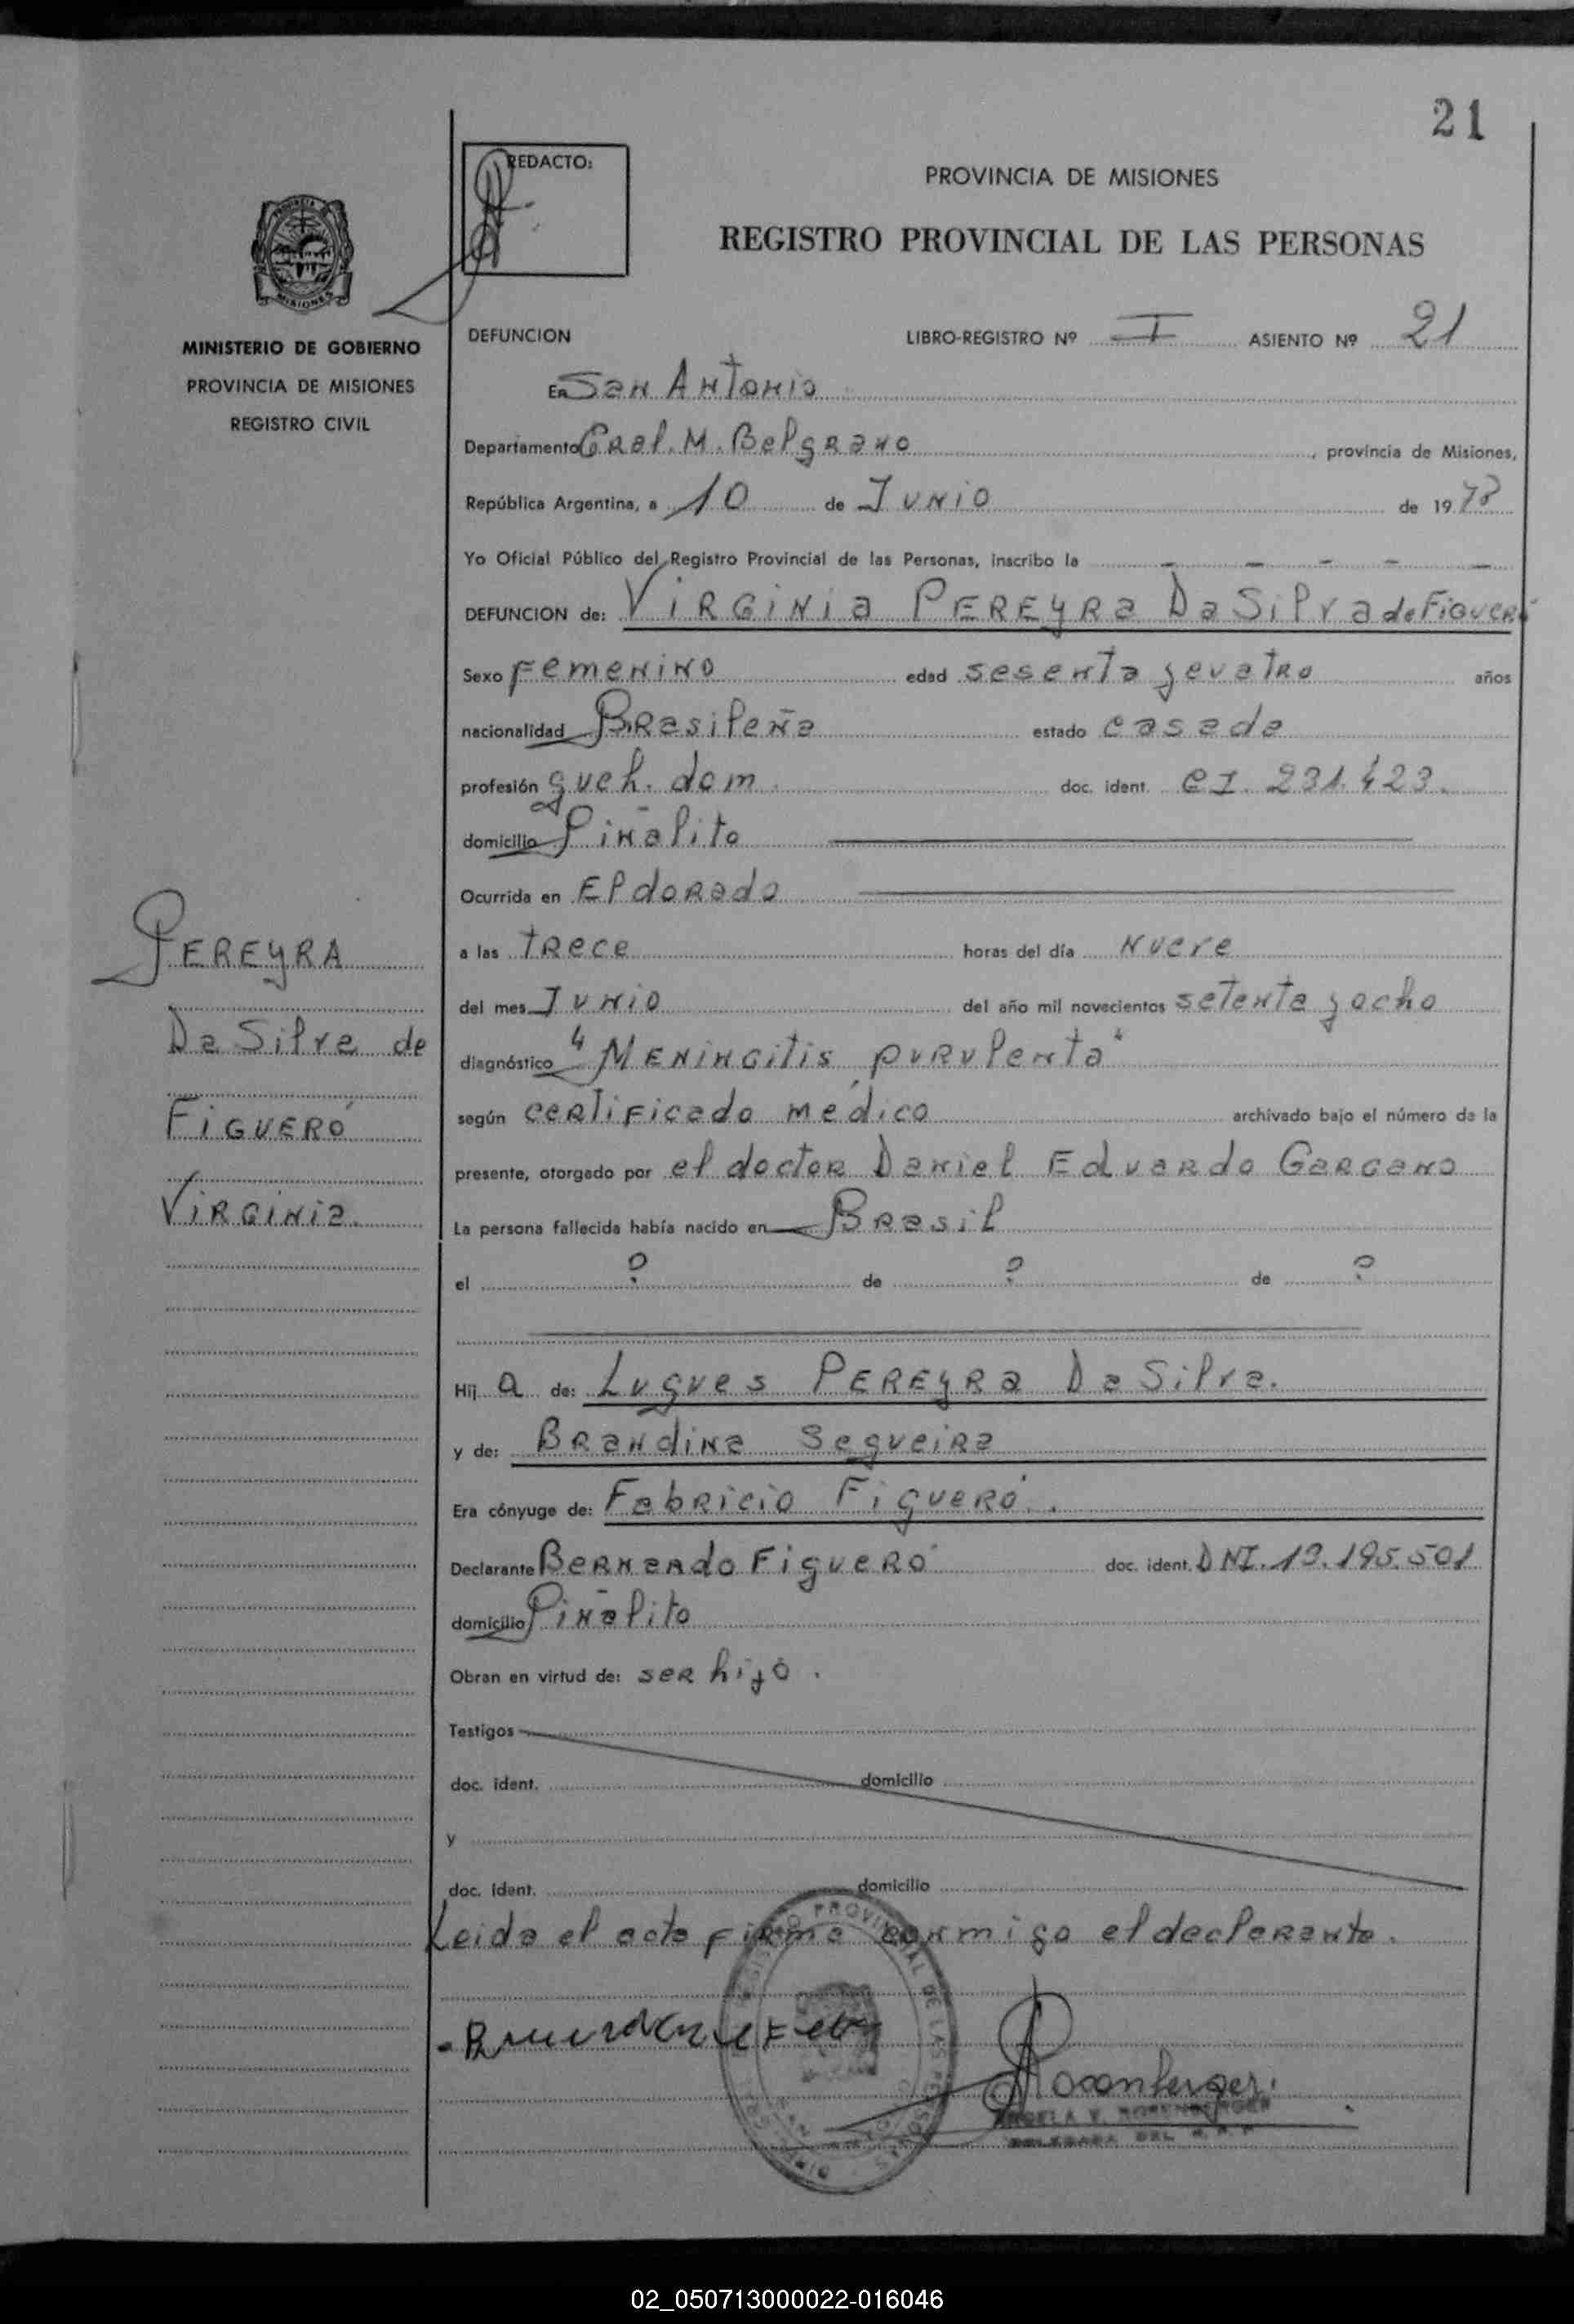 21
REDACTO:
PROVINCIA DE MISIONES
REGISTRO PROVINCIAL DE LAS PERSONAS
MISIONES
MINISTERIO DE GOBIERNO
PROVINCIA DE MISIONES
REGISTRO CIVIL
DEFUNCION LIBRO-REGISTRO Nº I ASIENTO Nº 21
En San Antonio
Departamento Gral. M. Belgrano, provincia de Misiones,
República Argentina, a 10 de Junio de 1978
Yo Oficial Público del Registro Provincial de las Personas, inscribo la - - - - -
DEFUNCION de: Virginia PEREYRa Da Silva de Figueró
Sexo Femenino edad sesenta y cuatro años
nacionalidad Brasileña estado casada
profesión queh. dom. doc. ident. CI. 231.423.
domicilio Piñalito
Ocurrida en Eldorado
a las trece horas del día nueve
del mes Junio del año mil novecientos setenta y ocho
diagnóstico "Meningitis purulenta"
según certificado médico archivado bajo el número de la
presente, otorgado por el doctor Daniel Eduardo Gargano
La persona fallecida había nacido en Brasil
el ? de ? de ?
Hij a de: Lugues PEREYRa Da Silva.
y de: Brandina Segueira
Era cónyuge de: Fabricio Figueró.
Declarante Bernardo Figueró doc. ident. DNI. 13.195.501
domicilio Piñalito
Obran en virtud de: ser hijo.
Testigos
doc. ident. domicilio
y
doc. ident. domicilio
Leida el acta firma conmigo el declarante.
PEREYRA
Da Silva de
Figueró
Virginia.
Rosenberger
ANGELA V. ROSENBERGER
DELEGADA DEL R.P.P.
02_050713000022-016046